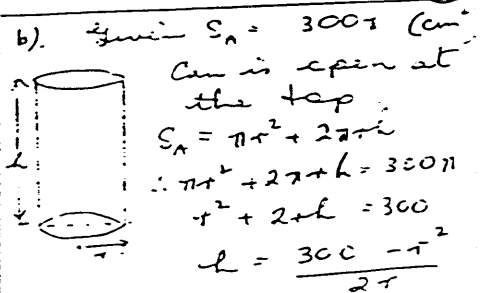 b). given S_A = 300π (cm²
Can is open at
the top.
h
S_A = πr² + 2πrh
∴ πr² + 2πrh = 300π
r² + 2rh = 300
r
h = \frac{300 - r²}{2r}